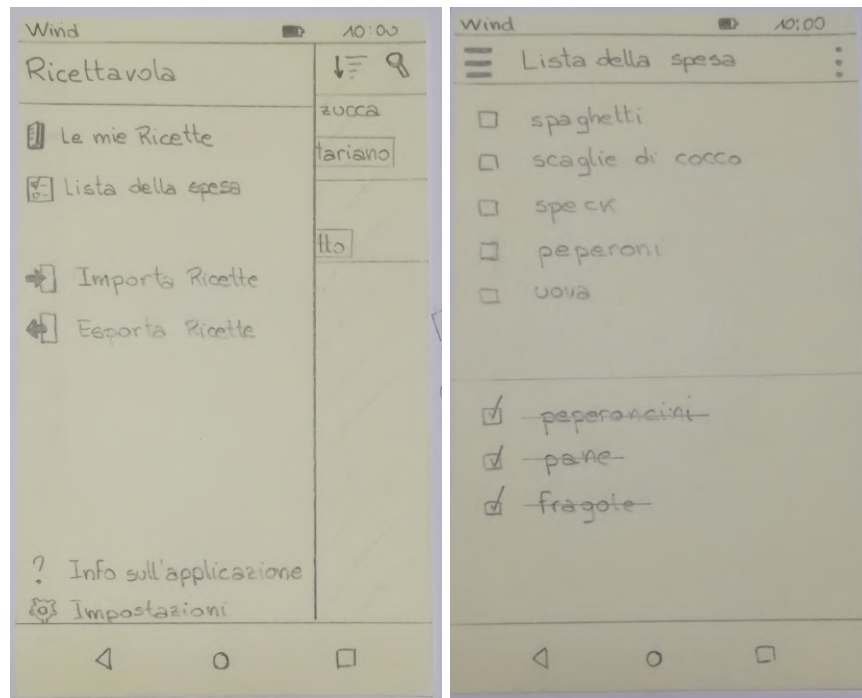 Wind 10:00
Ricettavola
zucca
Le mie Ricette
tariano
Lista della spesa
tto
Importa Ricette
Esporta Ricette
? Info sull'applicazione
Impostazioni
Wind 10:00
Lista della spesa
spaghetti
scaglie di cocco
speck
peperoni
uova
peperoncini
pane
fragole